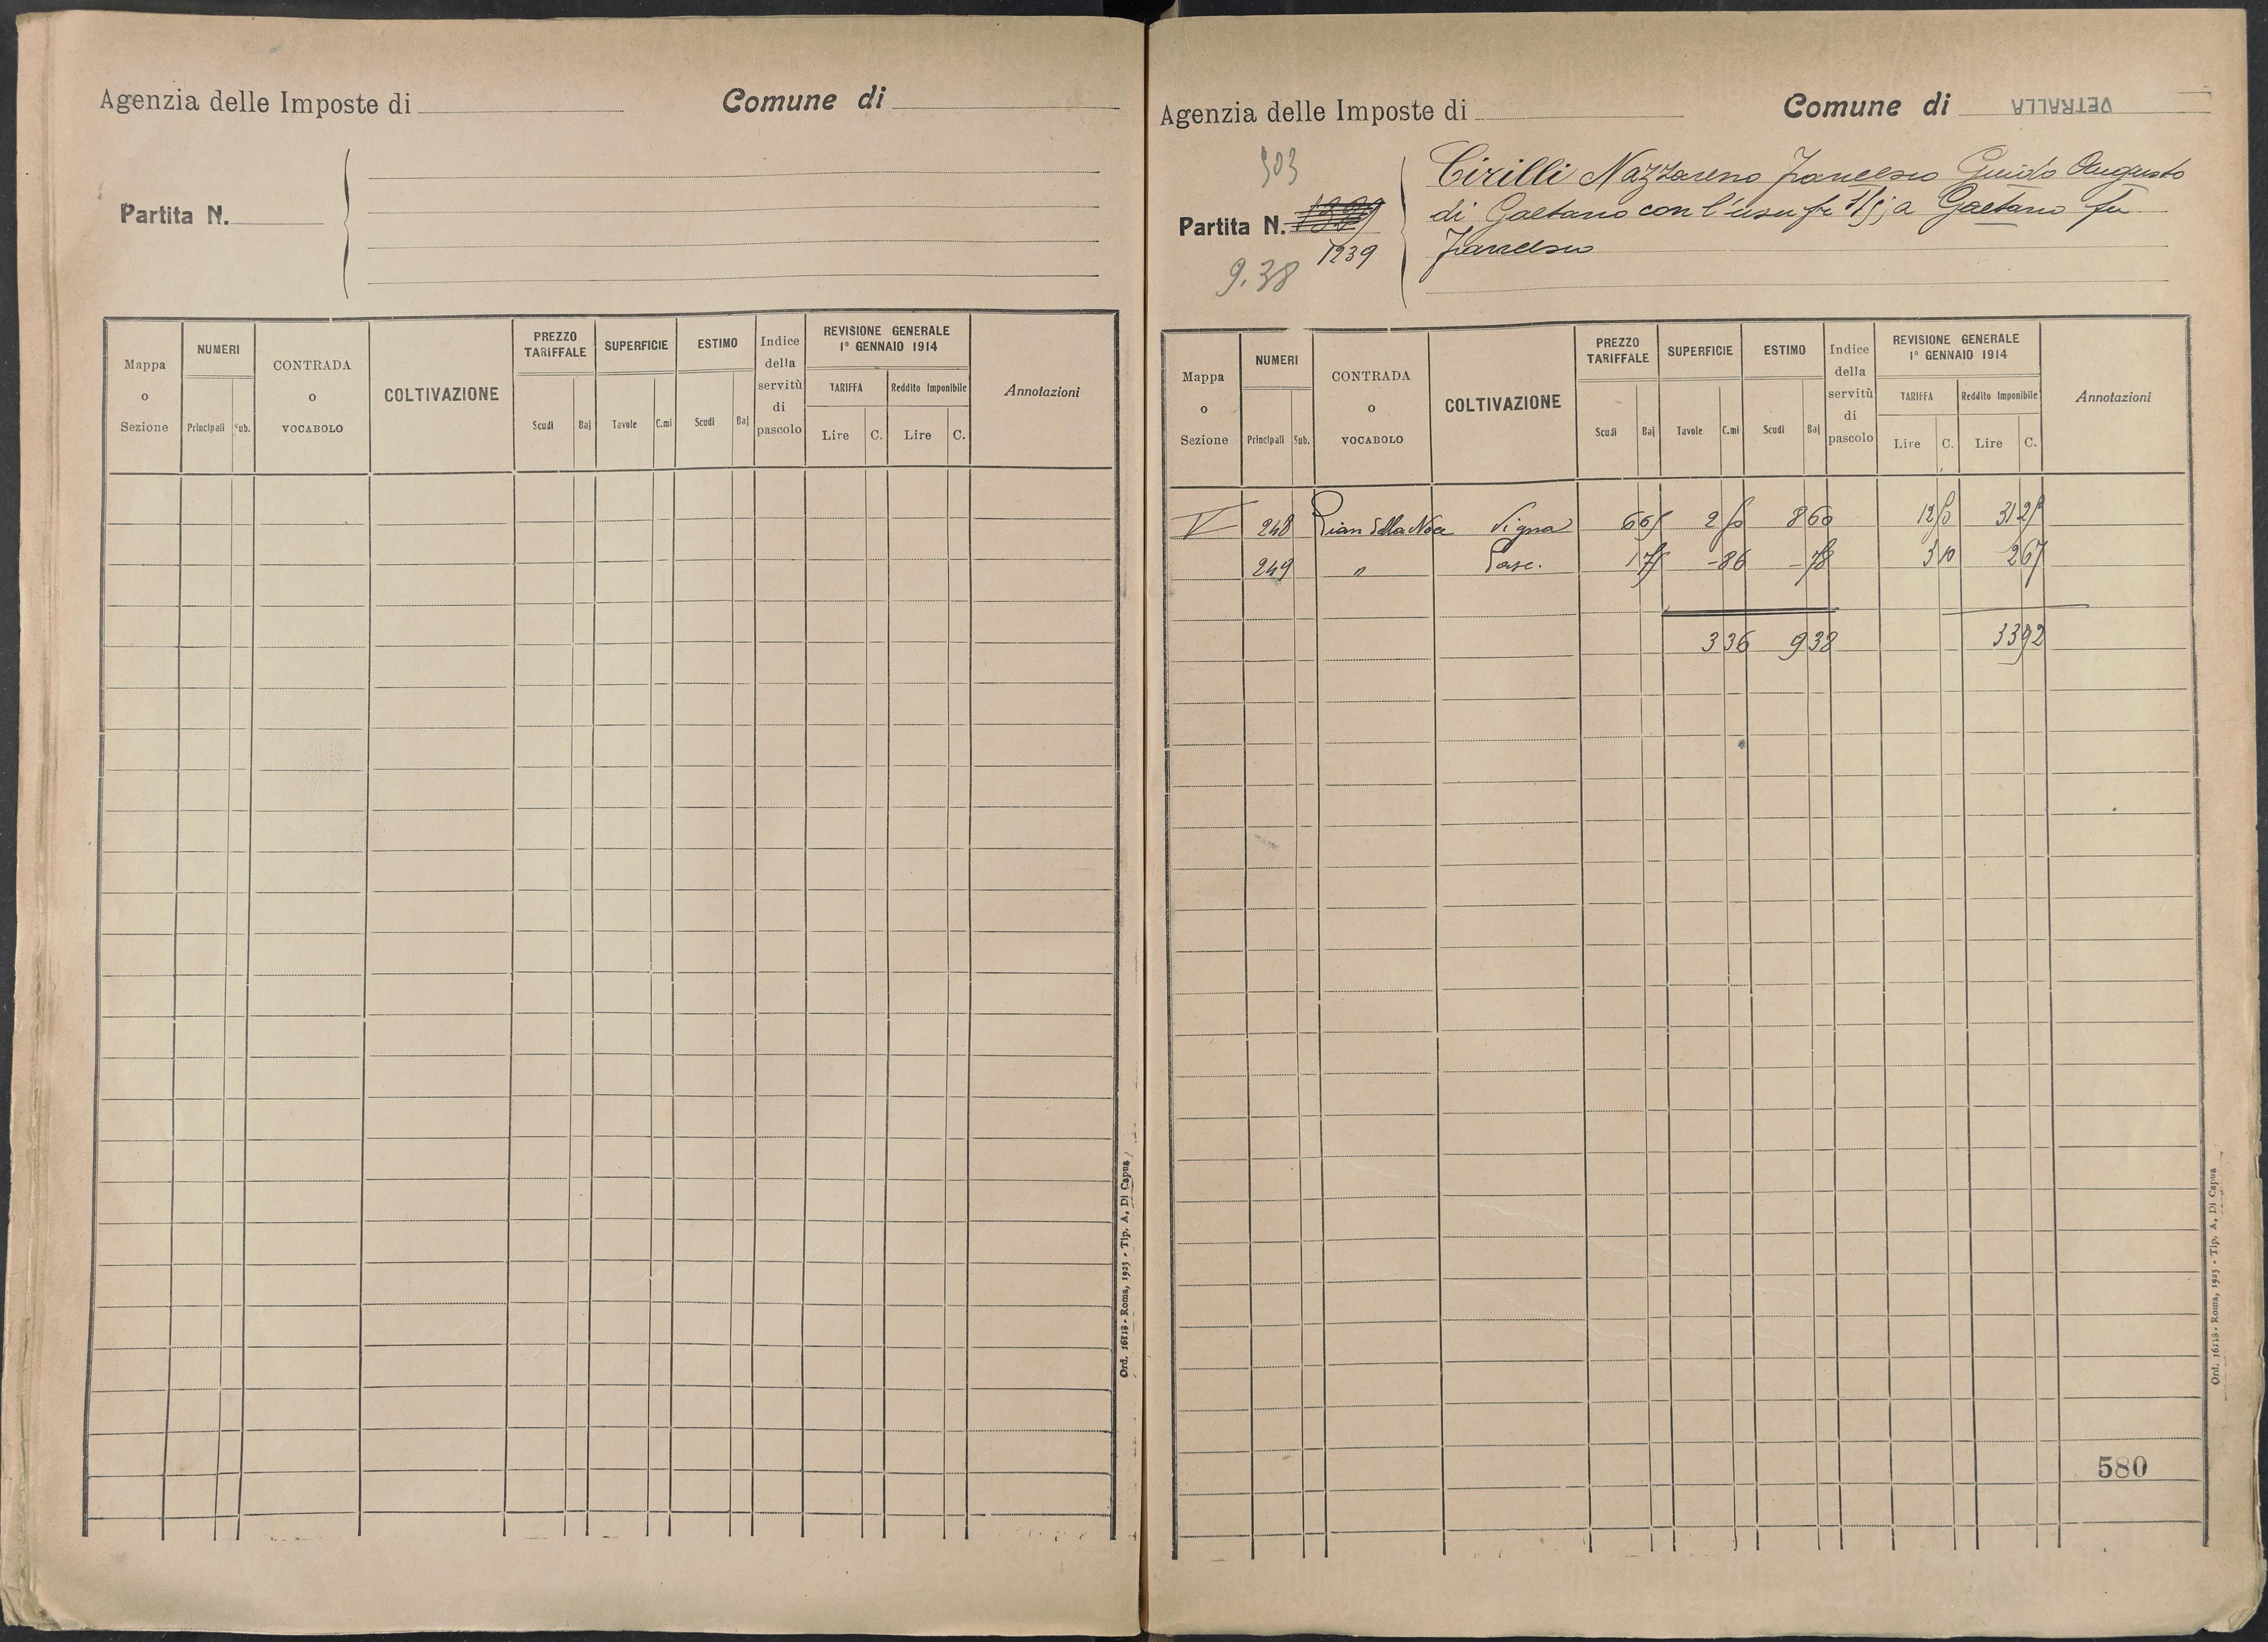 Agenzia delle Imposte di
Comune di
Partita N.
Mappa o Sezione
NUMERI
Principali
Sub.
CONTRADA o VOCABOLO
COLTIVAZIONE
PREZZO TARIFFALE
Scudi
Baj
SUPERFICIE
Tavole
C.mi
ESTIMO
Scudi
Baj
Indice della servitù di pascolo
REVISIONE GENERALE
1° GENNAIO 1914
TARIFFA
Lire
C.
Reddito Imponibile
Lire
C.
Annotazioni
Ord. 16118 - Roma, 1923 - Tip. A. Di Capua
Agenzia delle Imposte di
Comune di VETRALLA
903
Partita N.
1239
9.38
Cirilli Nazzareno Francesco Guido Augusto
di Gaetano con l'usufr 1/5 a Gaetano fu
Francesco
Mappa o Sezione
NUMERI
Principali
Sub.
CONTRADA o VOCABOLO
COLTIVAZIONE
PREZZO TARIFFALE
Scudi
Baj
SUPERFICIE
Tavole
C.mi
ESTIMO
Scudi
Baj
Indice della servitù di pascolo
REVISIONE GENERALE
1° GENNAIO 1914
TARIFFA
Lire
C.
Reddito Imponibile
Lire
C.
Annotazioni
V 248 Pian della Noce Vigna 2 50 8 60 12 50 31 25
249 " Pasc. - 86 - 78 3 10 2 67
3 36 9 38 33 92
580
Ord. 16118 - Roma, 1923 - Tip. A. Di Capua